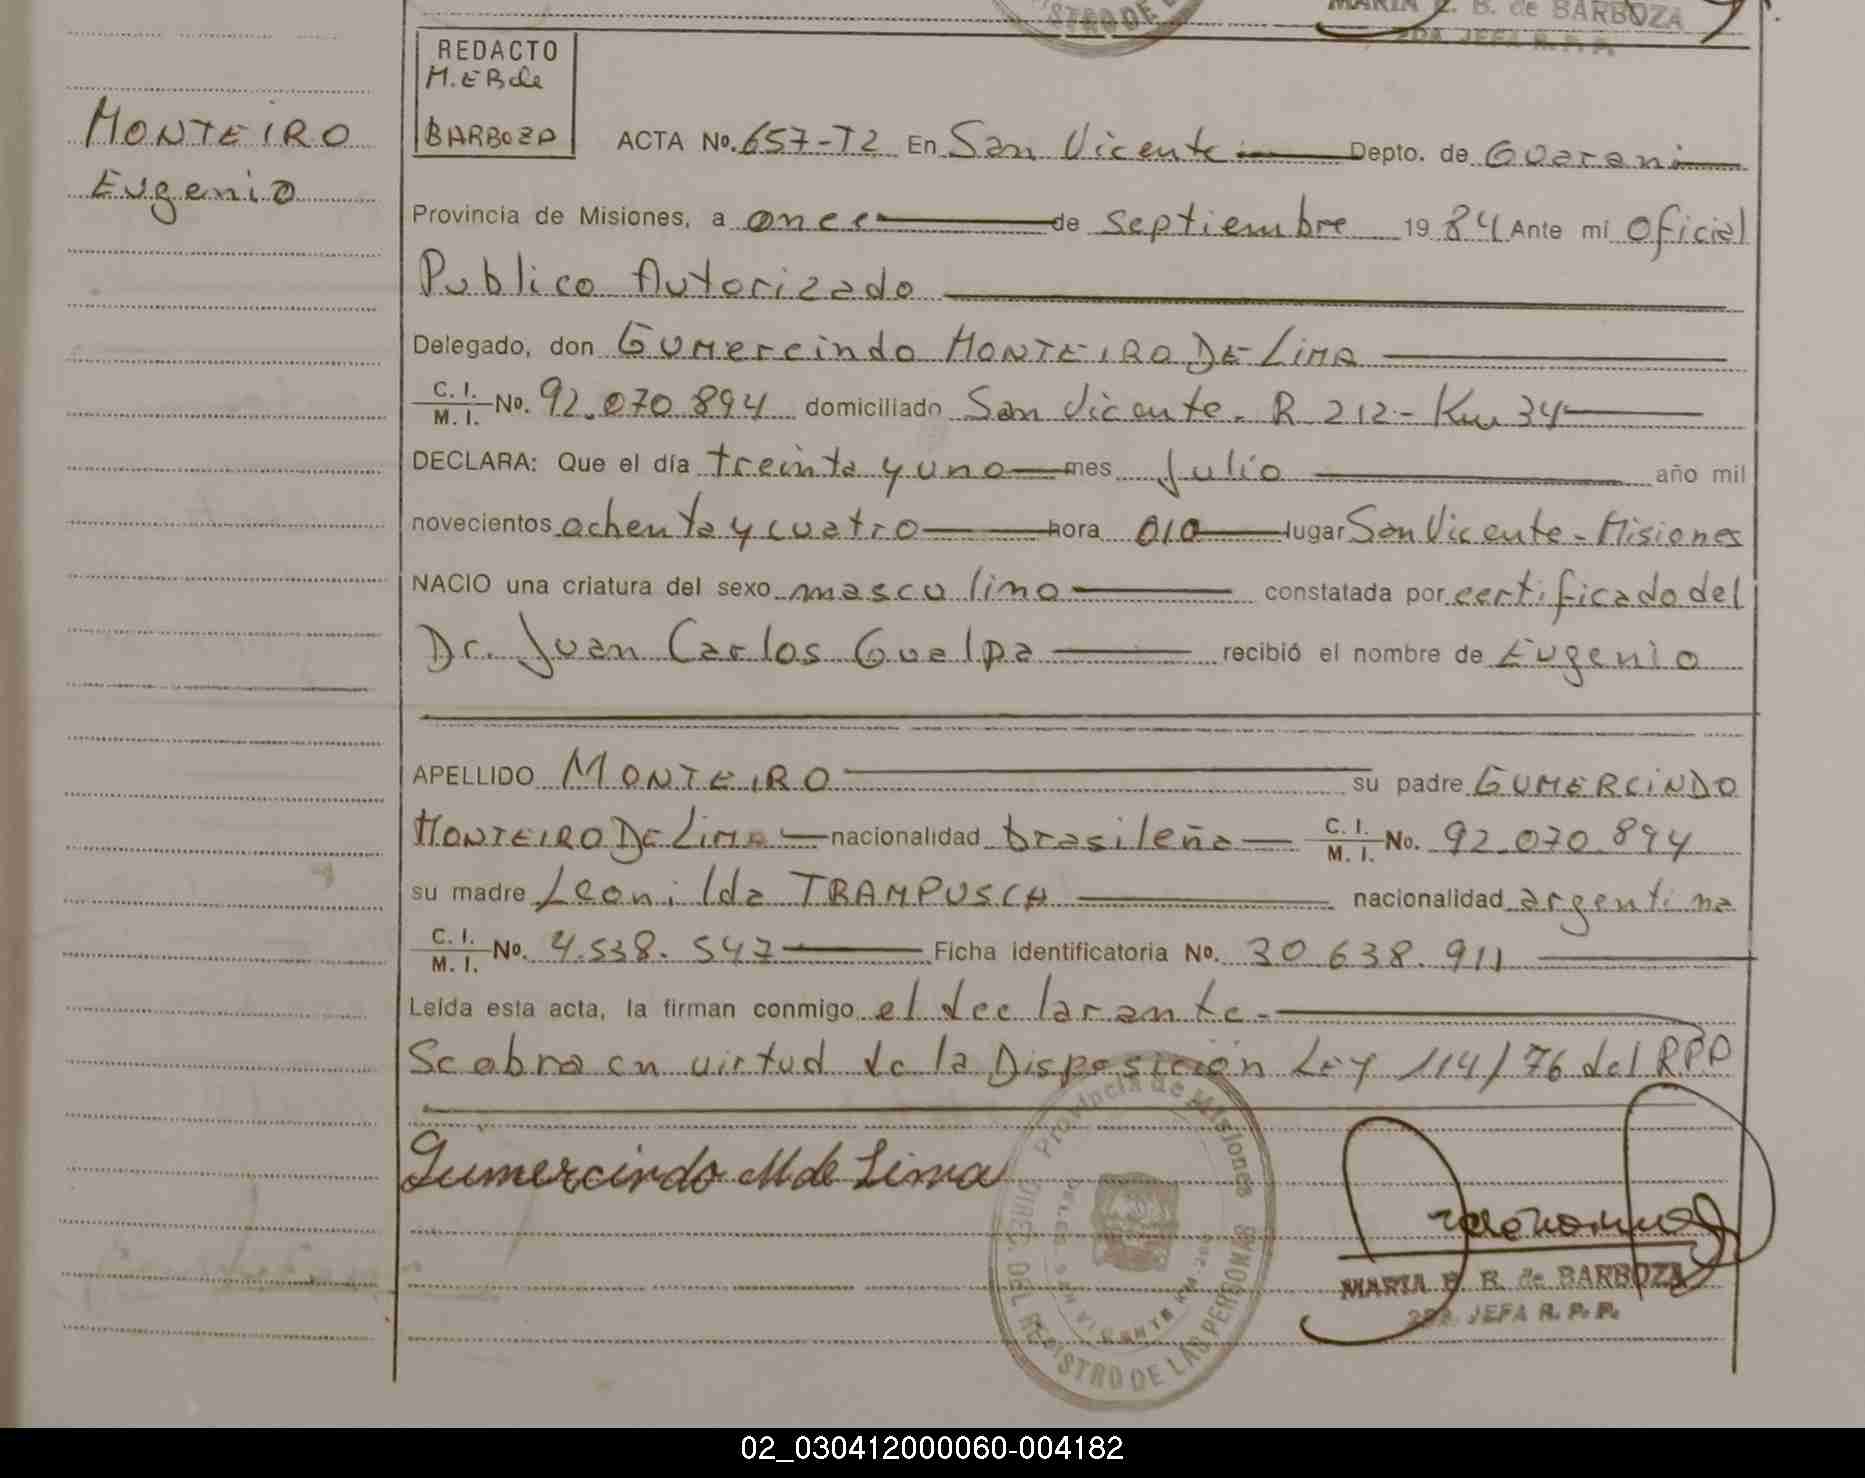 MARIA E. B. de BARBOZA
2DA. JEFA R. P. P.
STRO DE L
REDACTO
M.E B de
BARBOZA
MONTEIRO
Eugenio
ACTA No. 657-T2 En San Vicente Depto. de Guarani
Provincia de Misiones, a once de septiembre 1984 Ante mi Oficial
Publico Autorizado
Delegado, don Gumercindo MONTEIRO DE LIMA
C. I. / M. I. No. 92.070.894 domiciliado San Vicente - R 212 - Km 34
DECLARA: Que el día treinta y uno mes Julio año mil
novecientos ochenta y cuatro hora 010 lugar San Vicente - Misiones
NACIO una criatura del sexo masculino constatada por certificado del
Dr. Juan Carlos Guelpa recibió el nombre de Eugenio
APELLIDO MONTEIRO su padre GUMERCINDO
MONTEIRO DE LIMA nacionalidad brasileña C. I. / M. I. No. 92.070.894
su madre Leonilda TRAMPUSCH nacionalidad argentina
C. I. / M. I. No. 4.538.547 Ficha identificatoria No. 30.638.911
Leída esta acta, la firman conmigo el declarante.
Se obra en virtud de la Disposición Ley 114/76 del RPP
Gumercindo M de Lima
Provincia de Misiones
DIREC. DEL REGISTRO DE LAS PERSONAS
MARIA E. B. de BARBOZA
2DA. JEFA R. P. P.
02_030412000060-004182